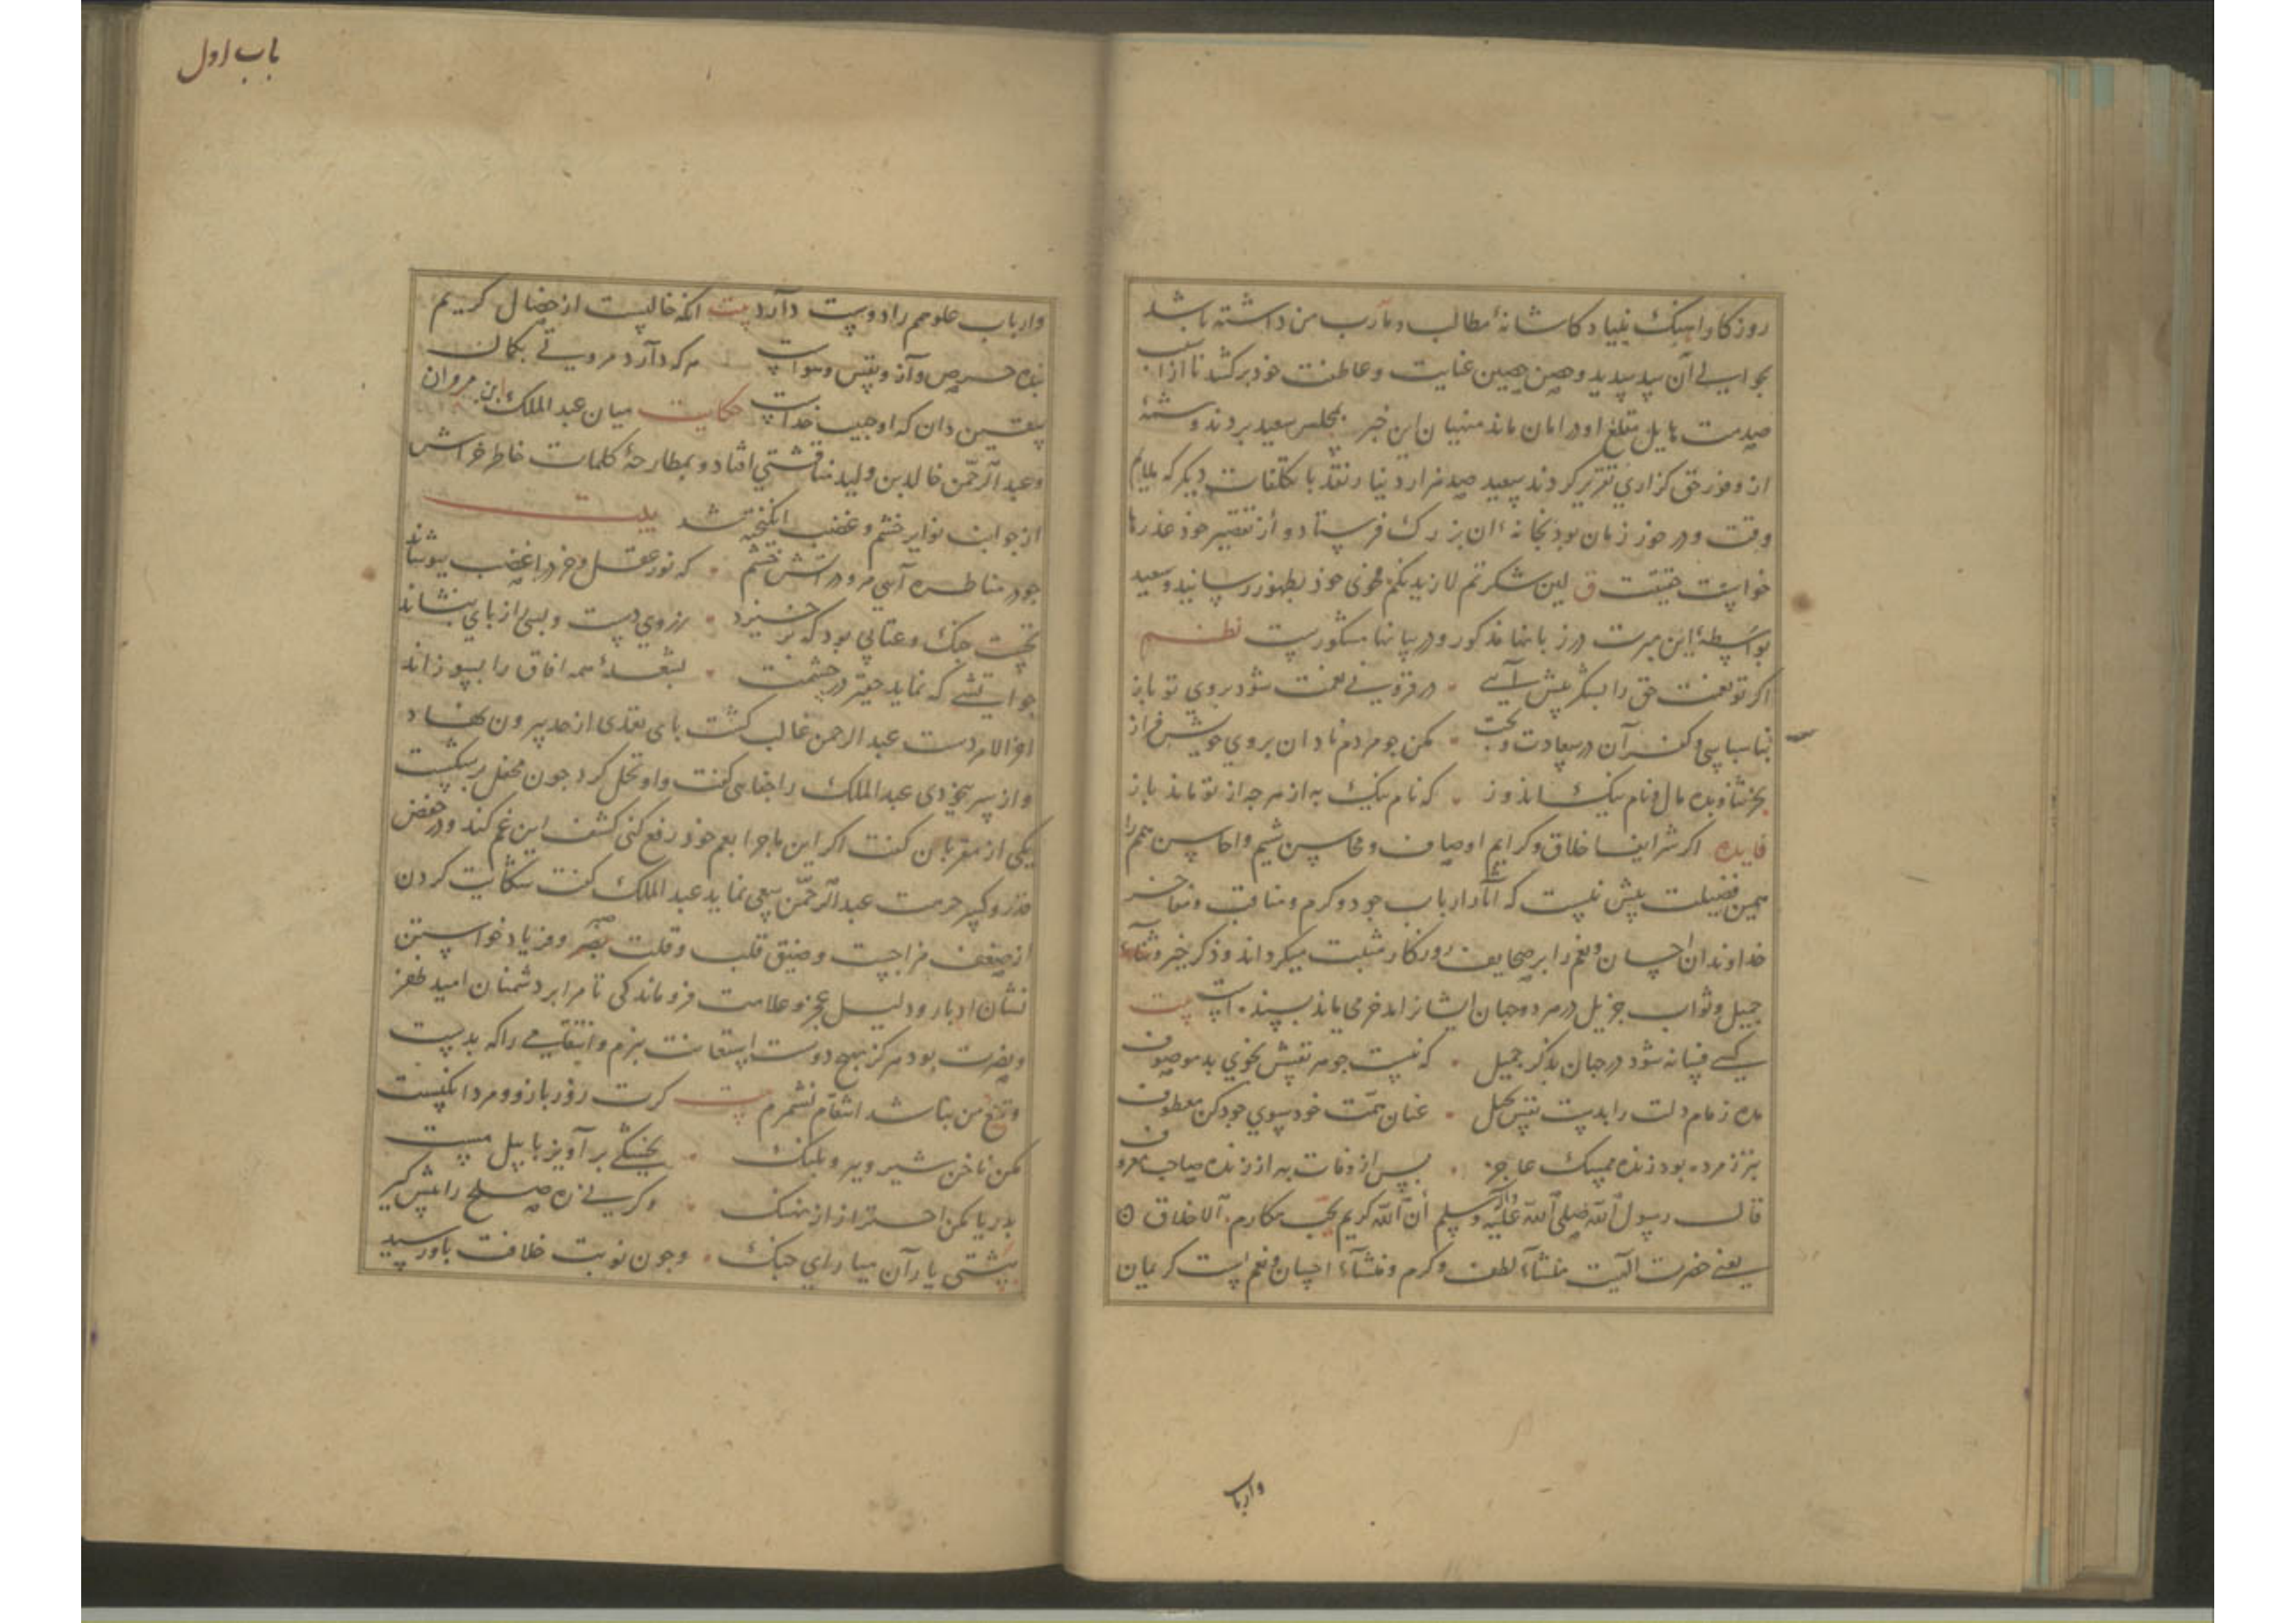 روزکار آهنک بنیاد کاشانهٔ مطالب و مآرب من داشته باشد
بجوابی آن سد سدید و حصن حصین عنایت و عاطفت خود برکشد تا از
صدمت او در امان ماند منهیان این خبر بمجلس سعید بردند و شمهٔ
از وفور حق کزاری تقریر کردند سعید صد هزار دینار نقد با تکلفات دیکر که ملایم
وقت و در خور زمان بود بخانهٔ آن بزرک فرستاد و از تقصیر خود عذرها
خواست حقیقت ق لین شکرتم لازیدنکم فحوی خود بظهور رسانید و سعید
بواسطهٔ این سرت در زبانها مذکور و در بیانها مشکورست نظم
اکر تو نعمت حق را بشکر پیش آیی در فزونی نعمت شود بروی تو باز
بناسپاسی و کفران در سعادت و بخت مکن جو مردم نادان بروی خویش فراز
ببخش و بده مال و نام نیک اندوز که نام نیک به از هرجه از تو ماند باز
فایده اکر شرایف اخلاق و کرایم اوصاف و محاسن شیم و احاسن همم را
همین فضیلت بیش نیست که آثار ارباب جود و کرم و مناقب و مفاخر
خداوندان احسان و نعم را بر صحایف روزکار مثبت میکرداند و ذکر خیر و ثنآء
جمیل و ثواب جزیل در هر دو جهان ایشانرا مدخر می ماند بسنده است بیت
کسی فسانه شود در جهان بذکر جمیل که نیست جوهر نفسش بخوی بد موصوف
مده زمام دلت را بدست نفس بخیل عنان همت خود سوی جود کن معطوف
بتر ز مرده بود زنده ممسک عاجز پس از وفات به از زنده صاحب معروف
قال رسول الله صلی الله علیه وآله وسلم أن الله کریم یحب مکارم الاخلاق
یعنی حضرت الهیت منشآء لطف و کرم و منشآء احسان و نعم است کریمان
وارباب
باب اول
وارباب علو همم را دوست دارد بیت انکه خالیست از خصال کریم
بنده حرص و آز و نفس و هواست هرکه دارد مروتی بکمال
یقین دان که او حبیب خداست حکایت میان عبد الملک ابن مروان
وعبد الرحمن خالد بن ولید مناقشتی افتاد و بمطارحهٔ کلمات خاطر خراش
از جوانب نوایر خشم و غضب انکیخته شد بیت
جو در مناظره آیی مرو در آتش خشم که نور عقل و خرد را غضب بپوشاند
نخست جنک و عتابی بود که برخیزد ز روی دست و بسی از بای بنشاند
جو آتشی که نماید حقیر در جشمت بشعلهٔ همه افاق را بسوزاند
اخر الامر دست عبد الرحمن غالب کشت بای تعدی از حد بیرون نهاد
و از سر بیخردی عبد الملک را جفا می کفت و او تحمل کرد جون محفل برشکست
یکی از مقربان کفت اکر این ماجرا بعم خود رفع کنی کشف این غم کند و در خفض
قدر و کسر حرمت عبد الرحمن سعی نماید عبد الملک کفت شکایت کردن
از ضعف مزاجست و ضیق قلب و قلت صبر و فریاد خواستن
نشان ادبار و دلیل عجز و علامت فروماندکی تا مرا بر دشمنان امید ظفر
و نصرت بود هرکز بهیچ دوست استعانت نبرم و انتقامی را که بدست
و تیغ من نباشد انتقام نشمرم بیت کرت زور بازو و مردانکیست
بجنکی برآویز با پیل مست مکن ناخن شیر و ببر و پلنک
وکرنی ره صلح را پیش کیر بدریا مکن احتراز از نهنک
بپشتی یاران میارای جنک وجون نوبت خلافت باو رسید